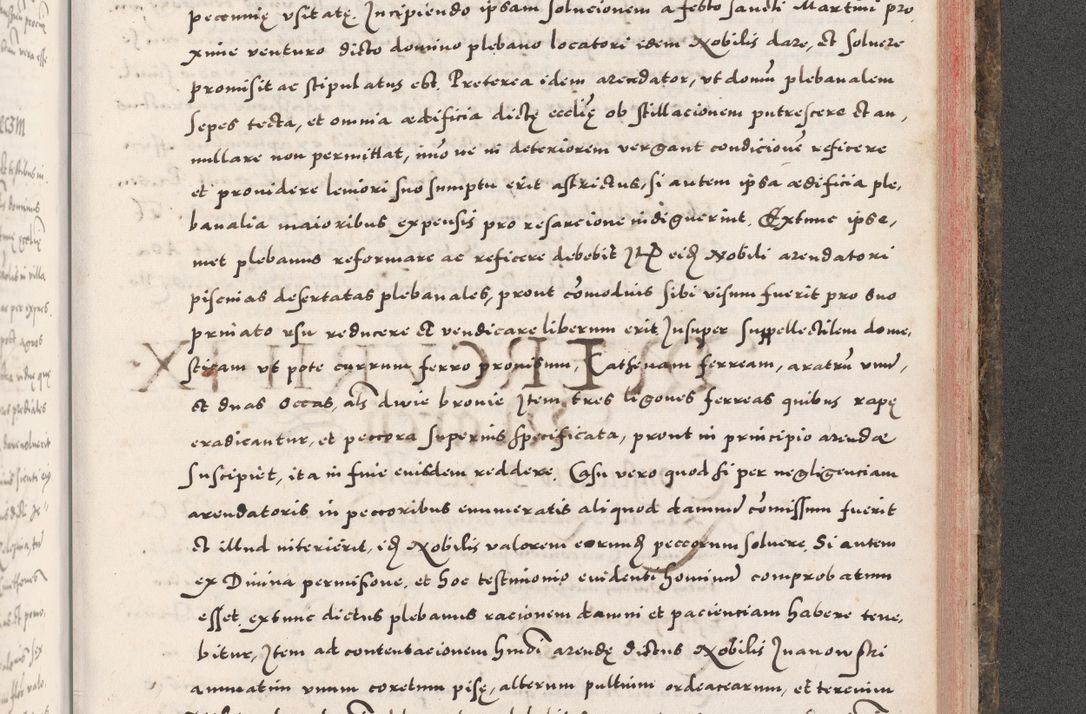 pecunię usitatę. Incipiendo ipsam solucionem a festo sancti Martini pro
xime venturo dicto domino plebano locatori idem Nobilis dare, et solvere
promisit ac stipulatus est. Preterea idem arendator, ut domū plebanalem
sepes tecta, et omnia ædificia dictę ecclię ob stillacionem putrescere et an,
nullare non permittat, imo ne in deteriorem vergant condicionē reficere
et providere leviori suo sumptu erit astrictus, si autem ipsa ædificia ple,
banalia maioribus expensis pro resarcione indiguerint. Extunc ipse,
met plebanus reformare ac reficere debebit Itē eidē Nobili arendatori
piscinas desertatas plebanales, prout cōmodius sibi visum fuerit pro suo
privato usu reducere et vendicare liberum erit Insuper suppellectilem dome,
sticam ut pote currum ferro provisum, Cathenam ferream, aratrū unū,
et duas occas, als dwie bronie Item tres ligones ferreas quibus rapę
eradicantur, et peccora superius specificata, prout in principio arendæ
suscipiet, ita in fine eiusdem reddere. Casu vero quod si per negligenciam
arendatoris in peccoribus enumeratis aliquod damnū cōmissum fuerit
et illud interierit, idē Nobilis valorem eorundē peccorum solvere. Si autem
ex Divina permissione, et hoc testimonio evidenti hominū comprobatum
esset, extunc dictus plebanus racionem damni et pacienciam habere tene,
bitur, Item ad contentacionem hmōi arendę dictus Nobilis Iwanowski
annuatim unum coretum pisę, alterum pultium ordeacearum, et tercium